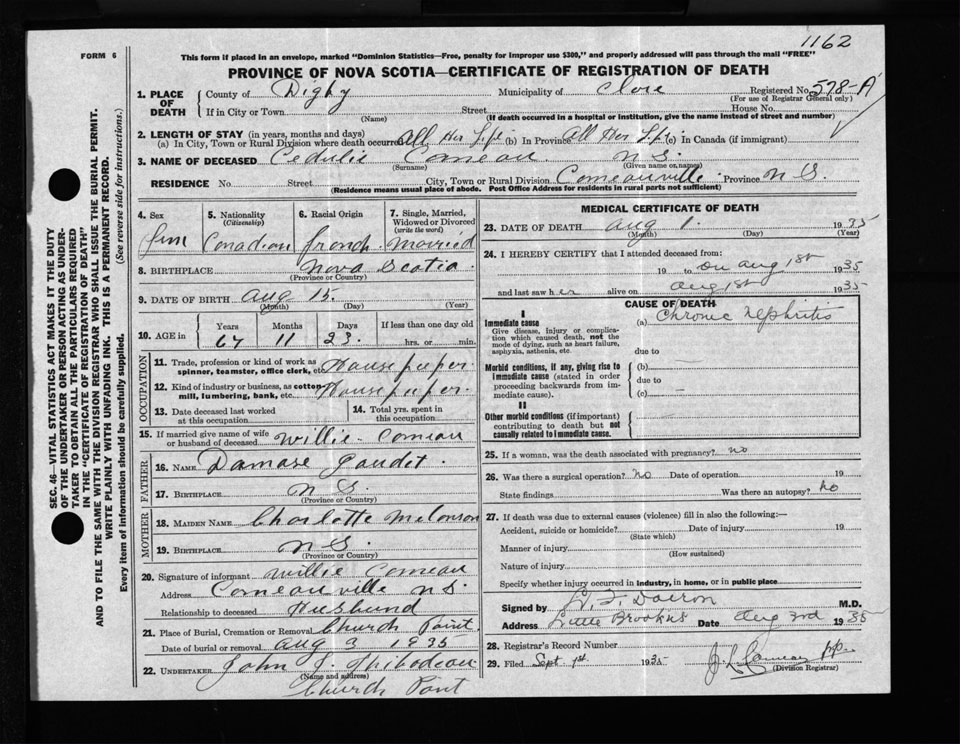 1162
FORM 6
This form if placed in an envelope, marked "Dominion Statistics—Free, penalty for improper use $300," and properly addressed will pass through the mail "FREE"
PROVINCE OF NOVA SCOTIA—CERTIFICATE OF REGISTRATION OF DEATH
SEC. 46—VITAL STATISTICS ACT MAKES IT THE DUTY OF THE UNDERTAKER OR PERSON ACTING AS UNDERTAKER TO OBTAIN ALL THE PARTICULARS REQUIRED IN THE "CERTIFICATE OF REGISTRATION OF DEATH"
AND TO FILE THE SAME WITH THE DIVISION REGISTRAR WHO SHALL ISSUE THE BURIAL PERMIT.
WRITE PLAINLY WITH UNFADING INK. THIS IS A PERMANENT RECORD.
Every item of information should be carefully supplied. (See reverse side for instructions.)
1. PLACE OF DEATH County of Digby Municipality of Clare Registered No. 578-A
(For use of Registrar General only)
If in City or Town Street House No.
(Name) (If death occurred in a hospital or institution, give the name instead of street and number)
2. LENGTH OF STAY (in years, months and days)
(a) In City, Town or Rural Division where death occurred All Her Life (b) In Province All Her Life (c) In Canada (if immigrant)
3. NAME OF DECEASED Cedulie Comeau N S.
(Surname) (Given name or names)
RESIDENCE No. Street City, Town or Rural Division Comeauville Province N S.
(Residence means usual place of abode. Post Office Address for residents in rural parts not sufficient)
4. Sex 5. Nationality (Citizenship) 6. Racial Origin 7. Single, Married, Widowed or Divorced (write the word)
fem Canadian french married
8. BIRTHPLACE Nova Scotia
(Province or Country)
9. DATE OF BIRTH Aug 15.
(Month) (Day) (Year)
10. AGE in Years Months Days If less than one day old
67 11 23. hrs. or min.
OCCUPATION
11. Trade, profession or kind of work as spinner, teamster, office clerk, etc. Housekeeper.
12. Kind of industry or business, as cotton mill, lumbering, bank, etc. Housekeeper.
13. Date deceased last worked at this occupation 14. Total yrs. spent in this occupation
15. If married give name of wife or husband of deceased Willie Comeau
FATHER
16. NAME Damase Gaudet.
17. BIRTHPLACE N S.
(Province or Country)
MOTHER
18. MAIDEN NAME Charlotte Melonson
19. BIRTHPLACE N S.
(Province or Country)
20. Signature of informant Willie Comeau
Address Comeauville N S.
Relationship to deceased Husband
21. Place of Burial, Cremation or Removal Church Point.
Date of burial or removal Aug 3 1935
22. UNDERTAKER John J. Thibodeau
(Name and address)
Church Point
MEDICAL CERTIFICATE OF DEATH
23. DATE OF DEATH Aug 1. 1935
(Month) (Day) (Year)
24. I HEREBY CERTIFY that I attended deceased from:
19 to on Aug 1st 1935
and last saw her alive on Aug 1st 1935
CAUSE OF DEATH
I
Immediate cause (a) Chronic Nephritis
Give disease, injury or complication which caused death, not the mode of dying, such as heart failure, asphyxia, asthenia, etc.
due to
Morbid conditions, if any, giving rise to immediate cause (stated in order proceeding backwards from immediate cause).
(b)
due to
(c)
II
Other morbid conditions (if important) contributing to death but not causally related to immediate cause.
25. If a woman, was the death associated with pregnancy? no
26. Was there a surgical operation? No Date of operation 19
State findings Was there an autopsy? No
27. If death was due to external causes (violence) fill in also the following:—
Accident, suicide or homicide? Date of injury 19
(State which)
Manner of injury
(How sustained)
Nature of injury
Specify whether injury occurred in industry, in home, or in public place
Signed by M.D.
Address Little Brook NS Date Aug 3rd 1935
28. Registrar's Record Number
29. Filed Sept 1st 1935
(Division Registrar)